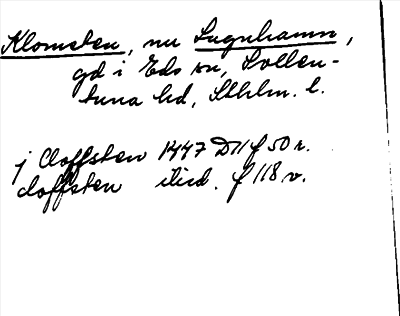 Klomsten, nu Lugnhamn,
gd i Eds sn, Sollen-
tuna hd, Sthlm. l.
j Cloffsten 1447 D11 f 50 r.
cloffsten ibid. f 118 v.